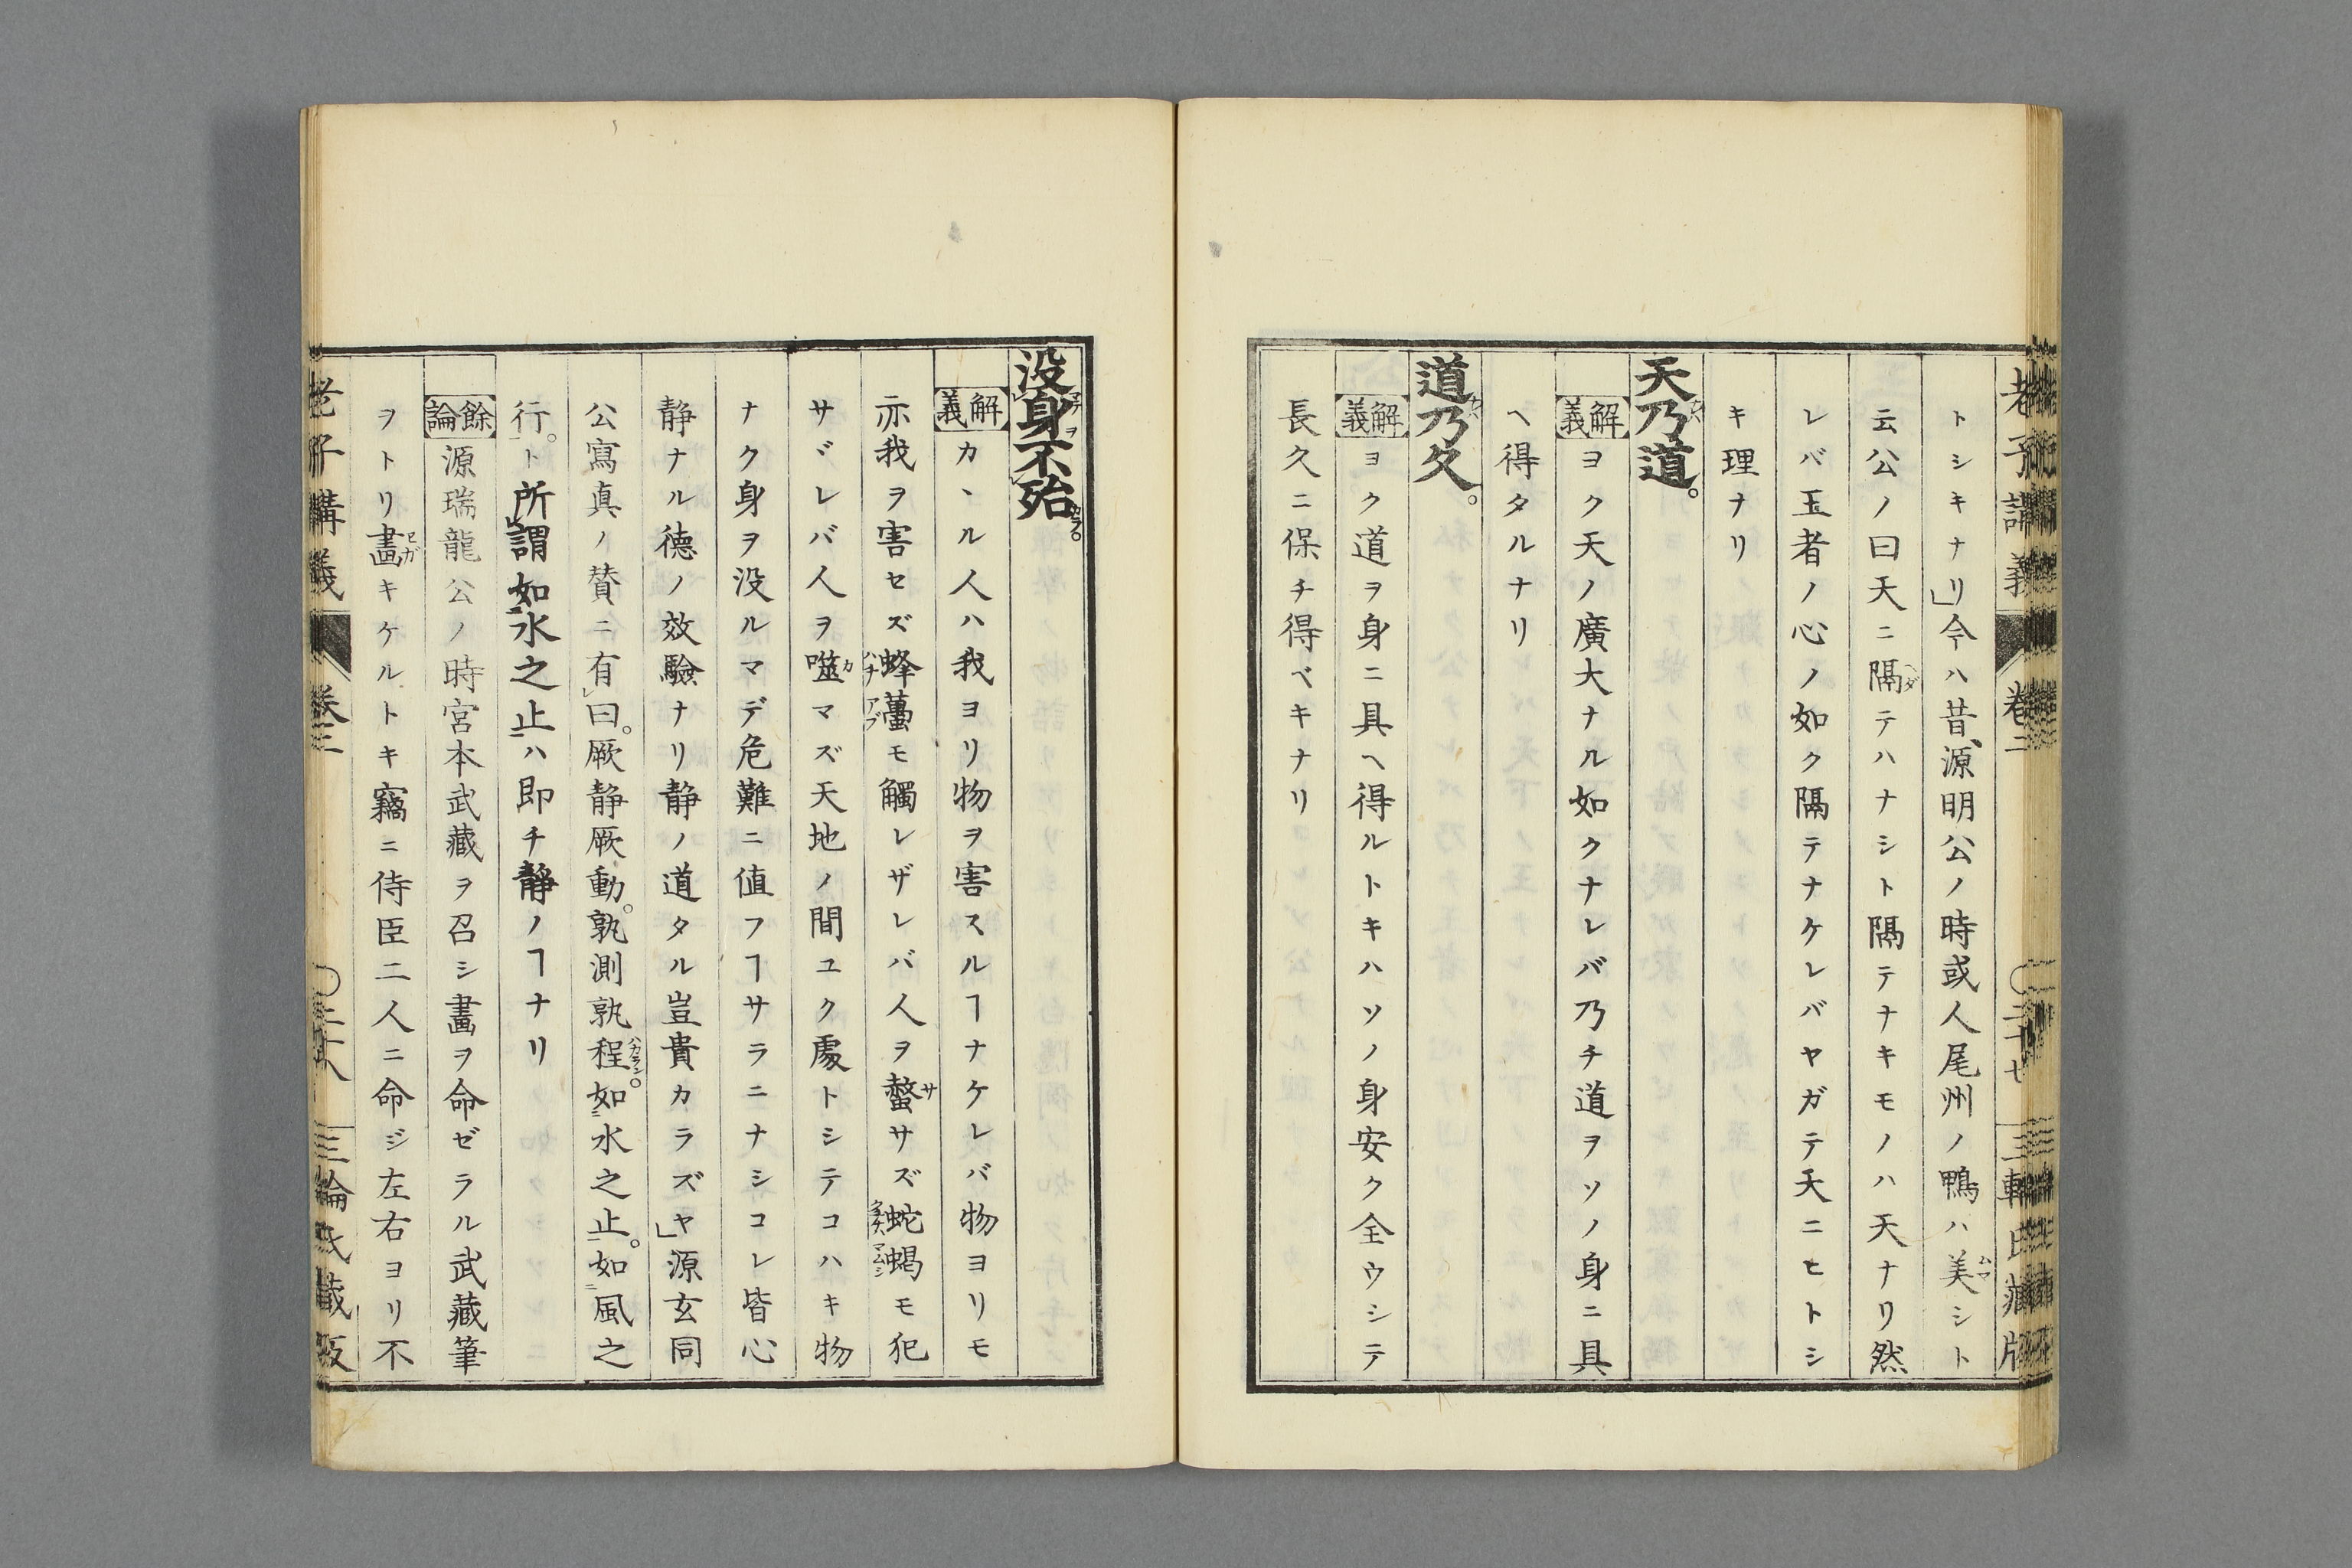 老子講義
卷二
二十七
三輪氏藏版
トシキナリ」今ハ昔源明公ノ時或人尾州ノ鴨ハ美シト
云公ノ曰天ニ隔テハナシト隔テナキモノハ天ナリ然
レバ王者ノ心ノ如ク隔テナケレバヤガテ天ニヒトシ
キ理ナリ
天乃道。
解義 ヨク天ノ廣大ナル如クナレバ乃チ道ヲソノ身ニ具
ヘ得タルナリ
道乃久。
解義 ヨク道ヲ身ニ具ヘ得ルトキハソノ身安ク全ウシテ
長久ニ保チ得ベキナリ
没身不殆。
解義 カヽル人ハ我ヨリ物ヲ害スルヿナケレバ物ヨリモ
亦我ヲ害セズ蜂蠆モ觸レザレバ人ヲ螫サズ蛇蝎モ犯
サヾレバ人ヲ噬マズ天地ノ間ユク處トシテコハキ物
ナク身ヲ没ルマデ危難ニ値フヿサラニナシコレ皆心
静ナル德ノ效驗ナリ静ノ道タル豈貴カラズヤ」源玄同
公寫真ノ賛ニ有曰。厥静厥動。孰測孰程。如水之止。如風之
行。ト所謂如水之止ハ即チ静ノヿナリ
餘論 源瑞龍公ノ時宮本武藏ヲ召シ畫ヲ命ゼラル武藏筆
ヲトリ畫キケルトキ竊ニ侍臣二人ニ命ジ左右ヨリ不
老子講義
卷二
二十八
三輪氏藏版